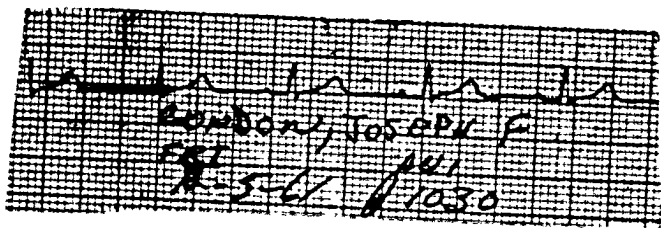 CONDON, JOSEPH F.
FBI
12-5-61 1030